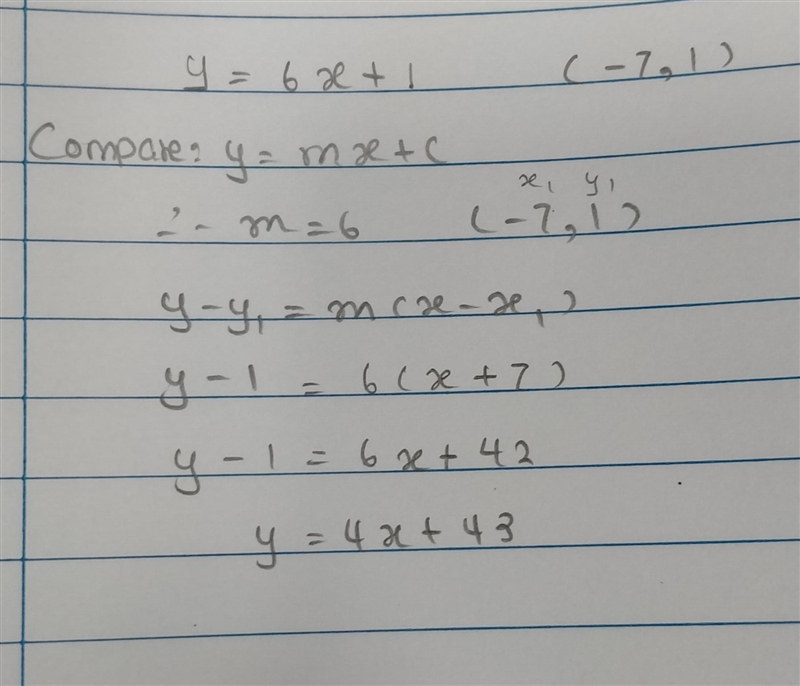 y = 6x + 1 (-7, 1)
Compare: y = mx + c
∴ m = 6 (-7, 1)
x₁ y₁
y - y₁ = m(x - x₁)
y - 1 = 6(x + 7)
y - 1 = 6x + 42
y = 4x + 43